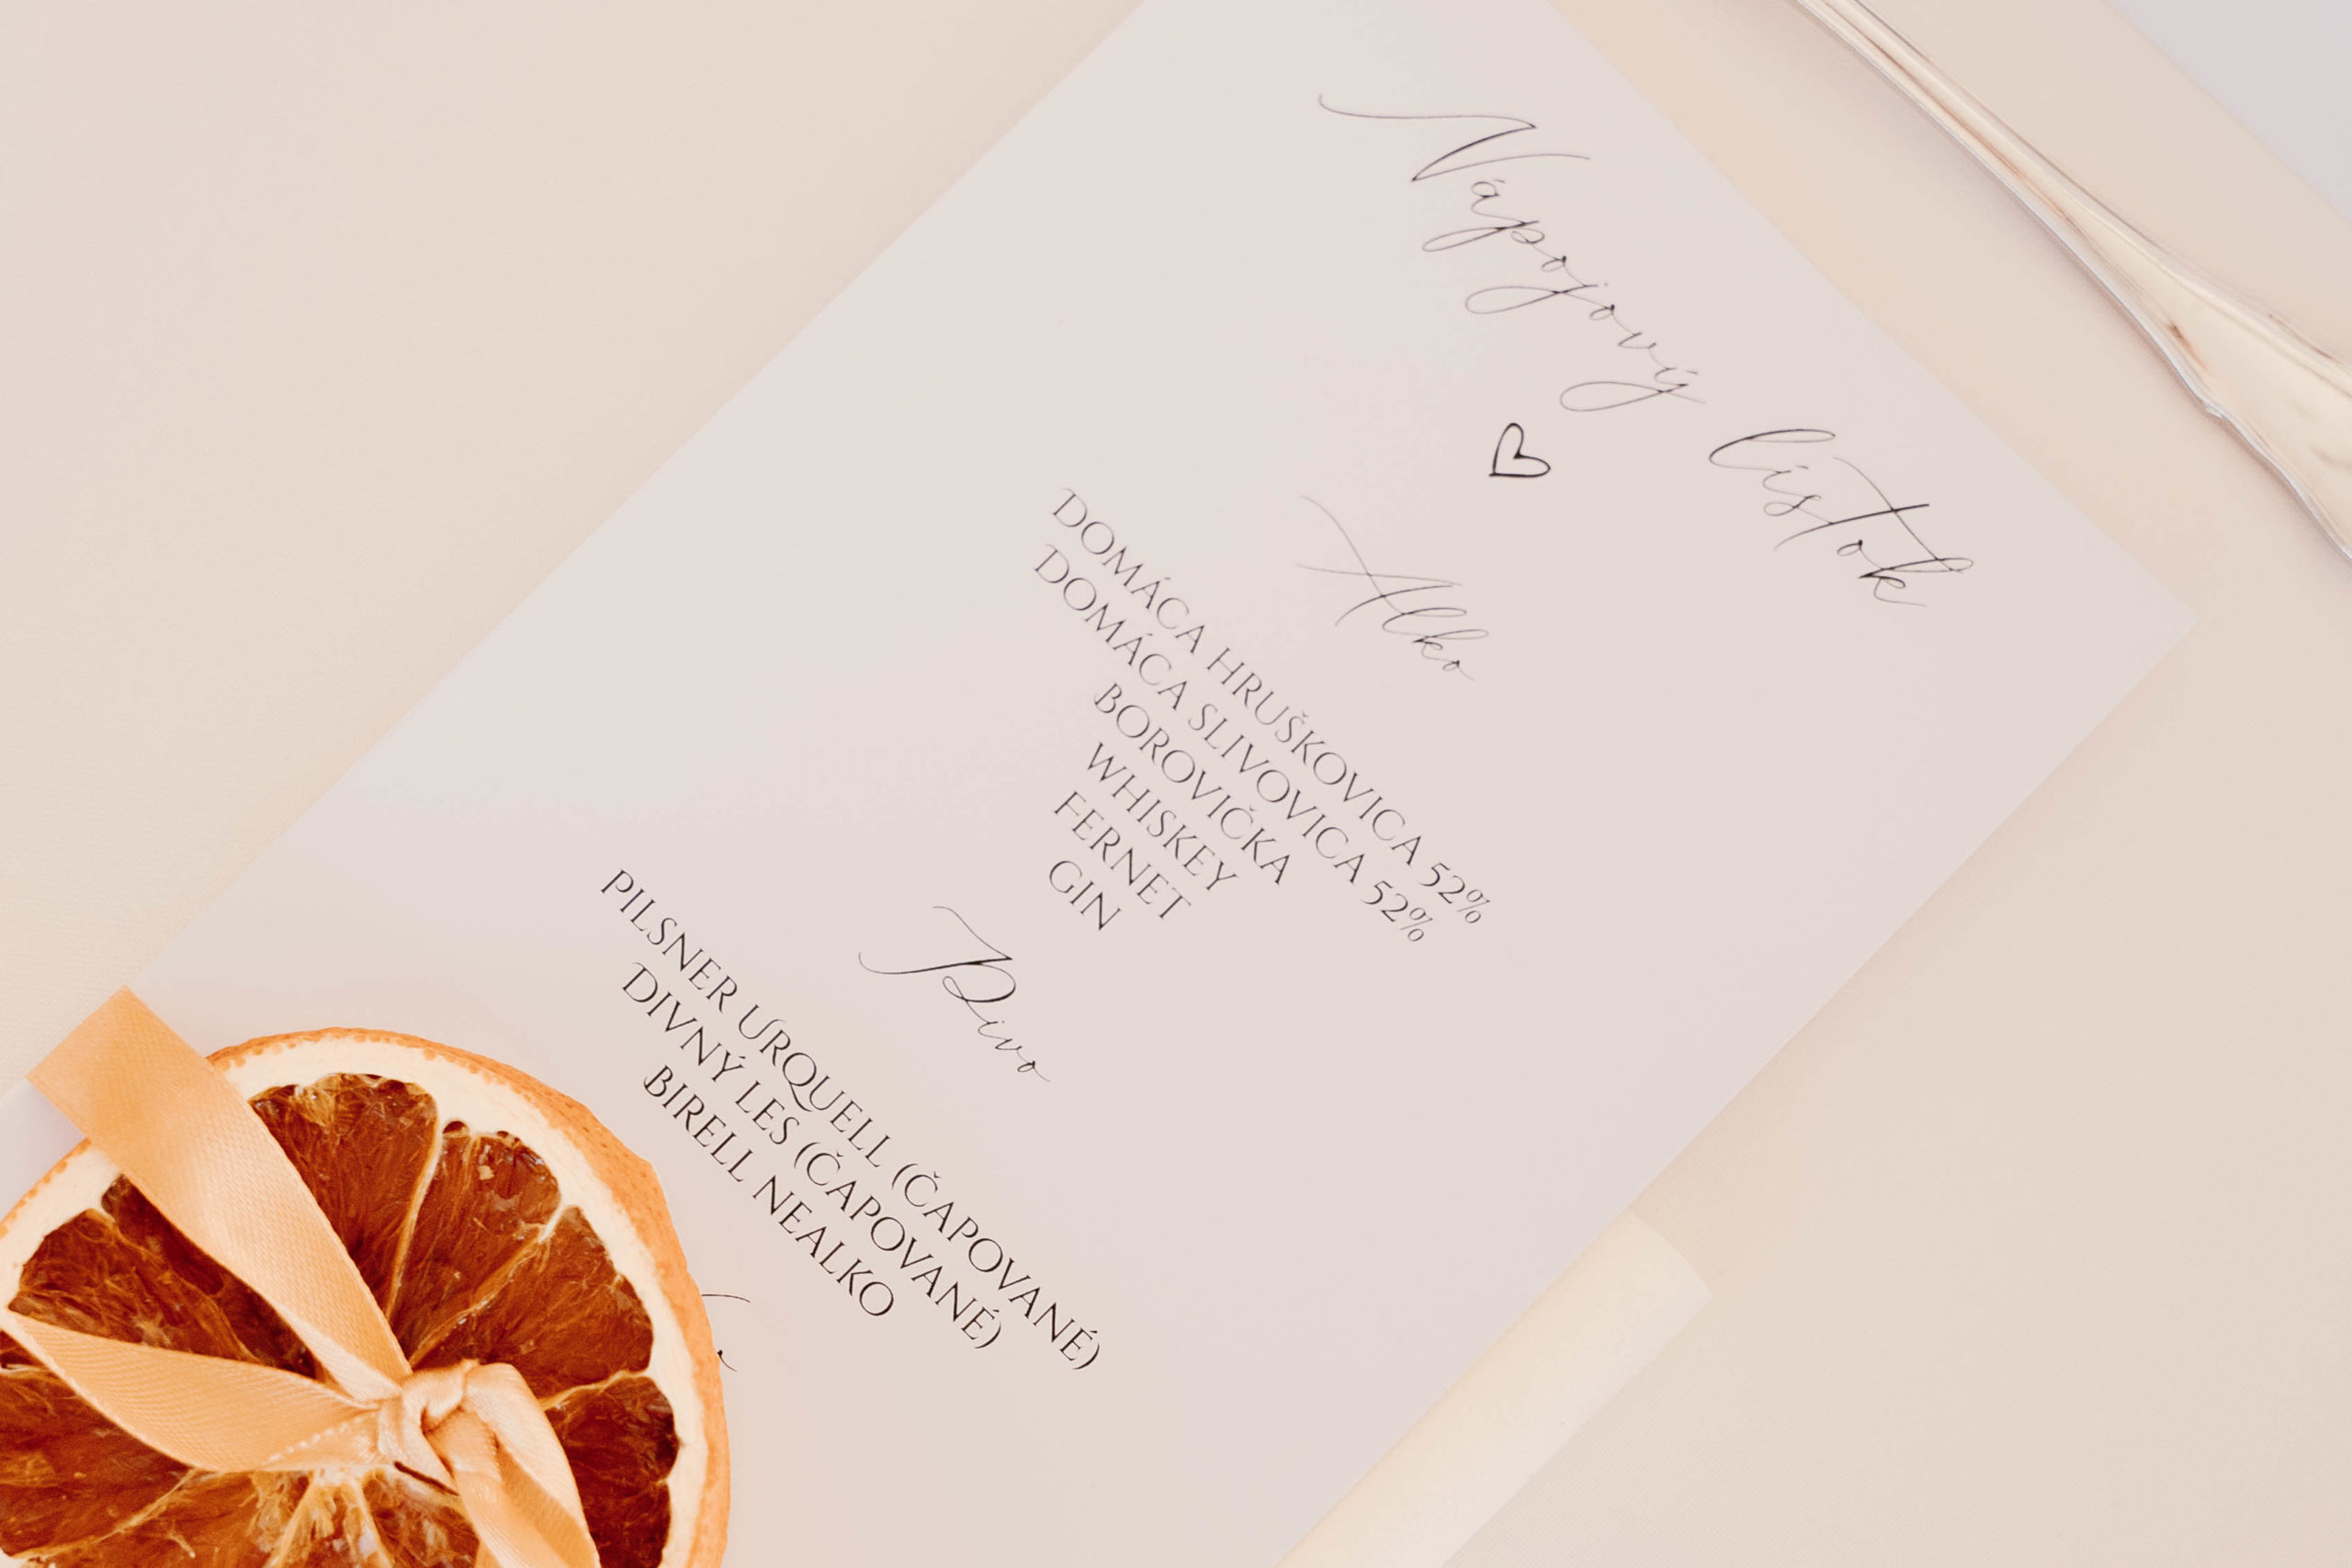 Nápojový lístok
Alko
DOMÁCA HRUŠKOVICA 52%
DOMÁCA SLIVOVICA 52%
BOROVIČKA
WHISKEY
FERNET
GIN
Pivo
PILSNER URQUELL (ČAPOVANÉ)
DIVNÝ LES (ČAPOVANÉ)
BIRELL NEALKO